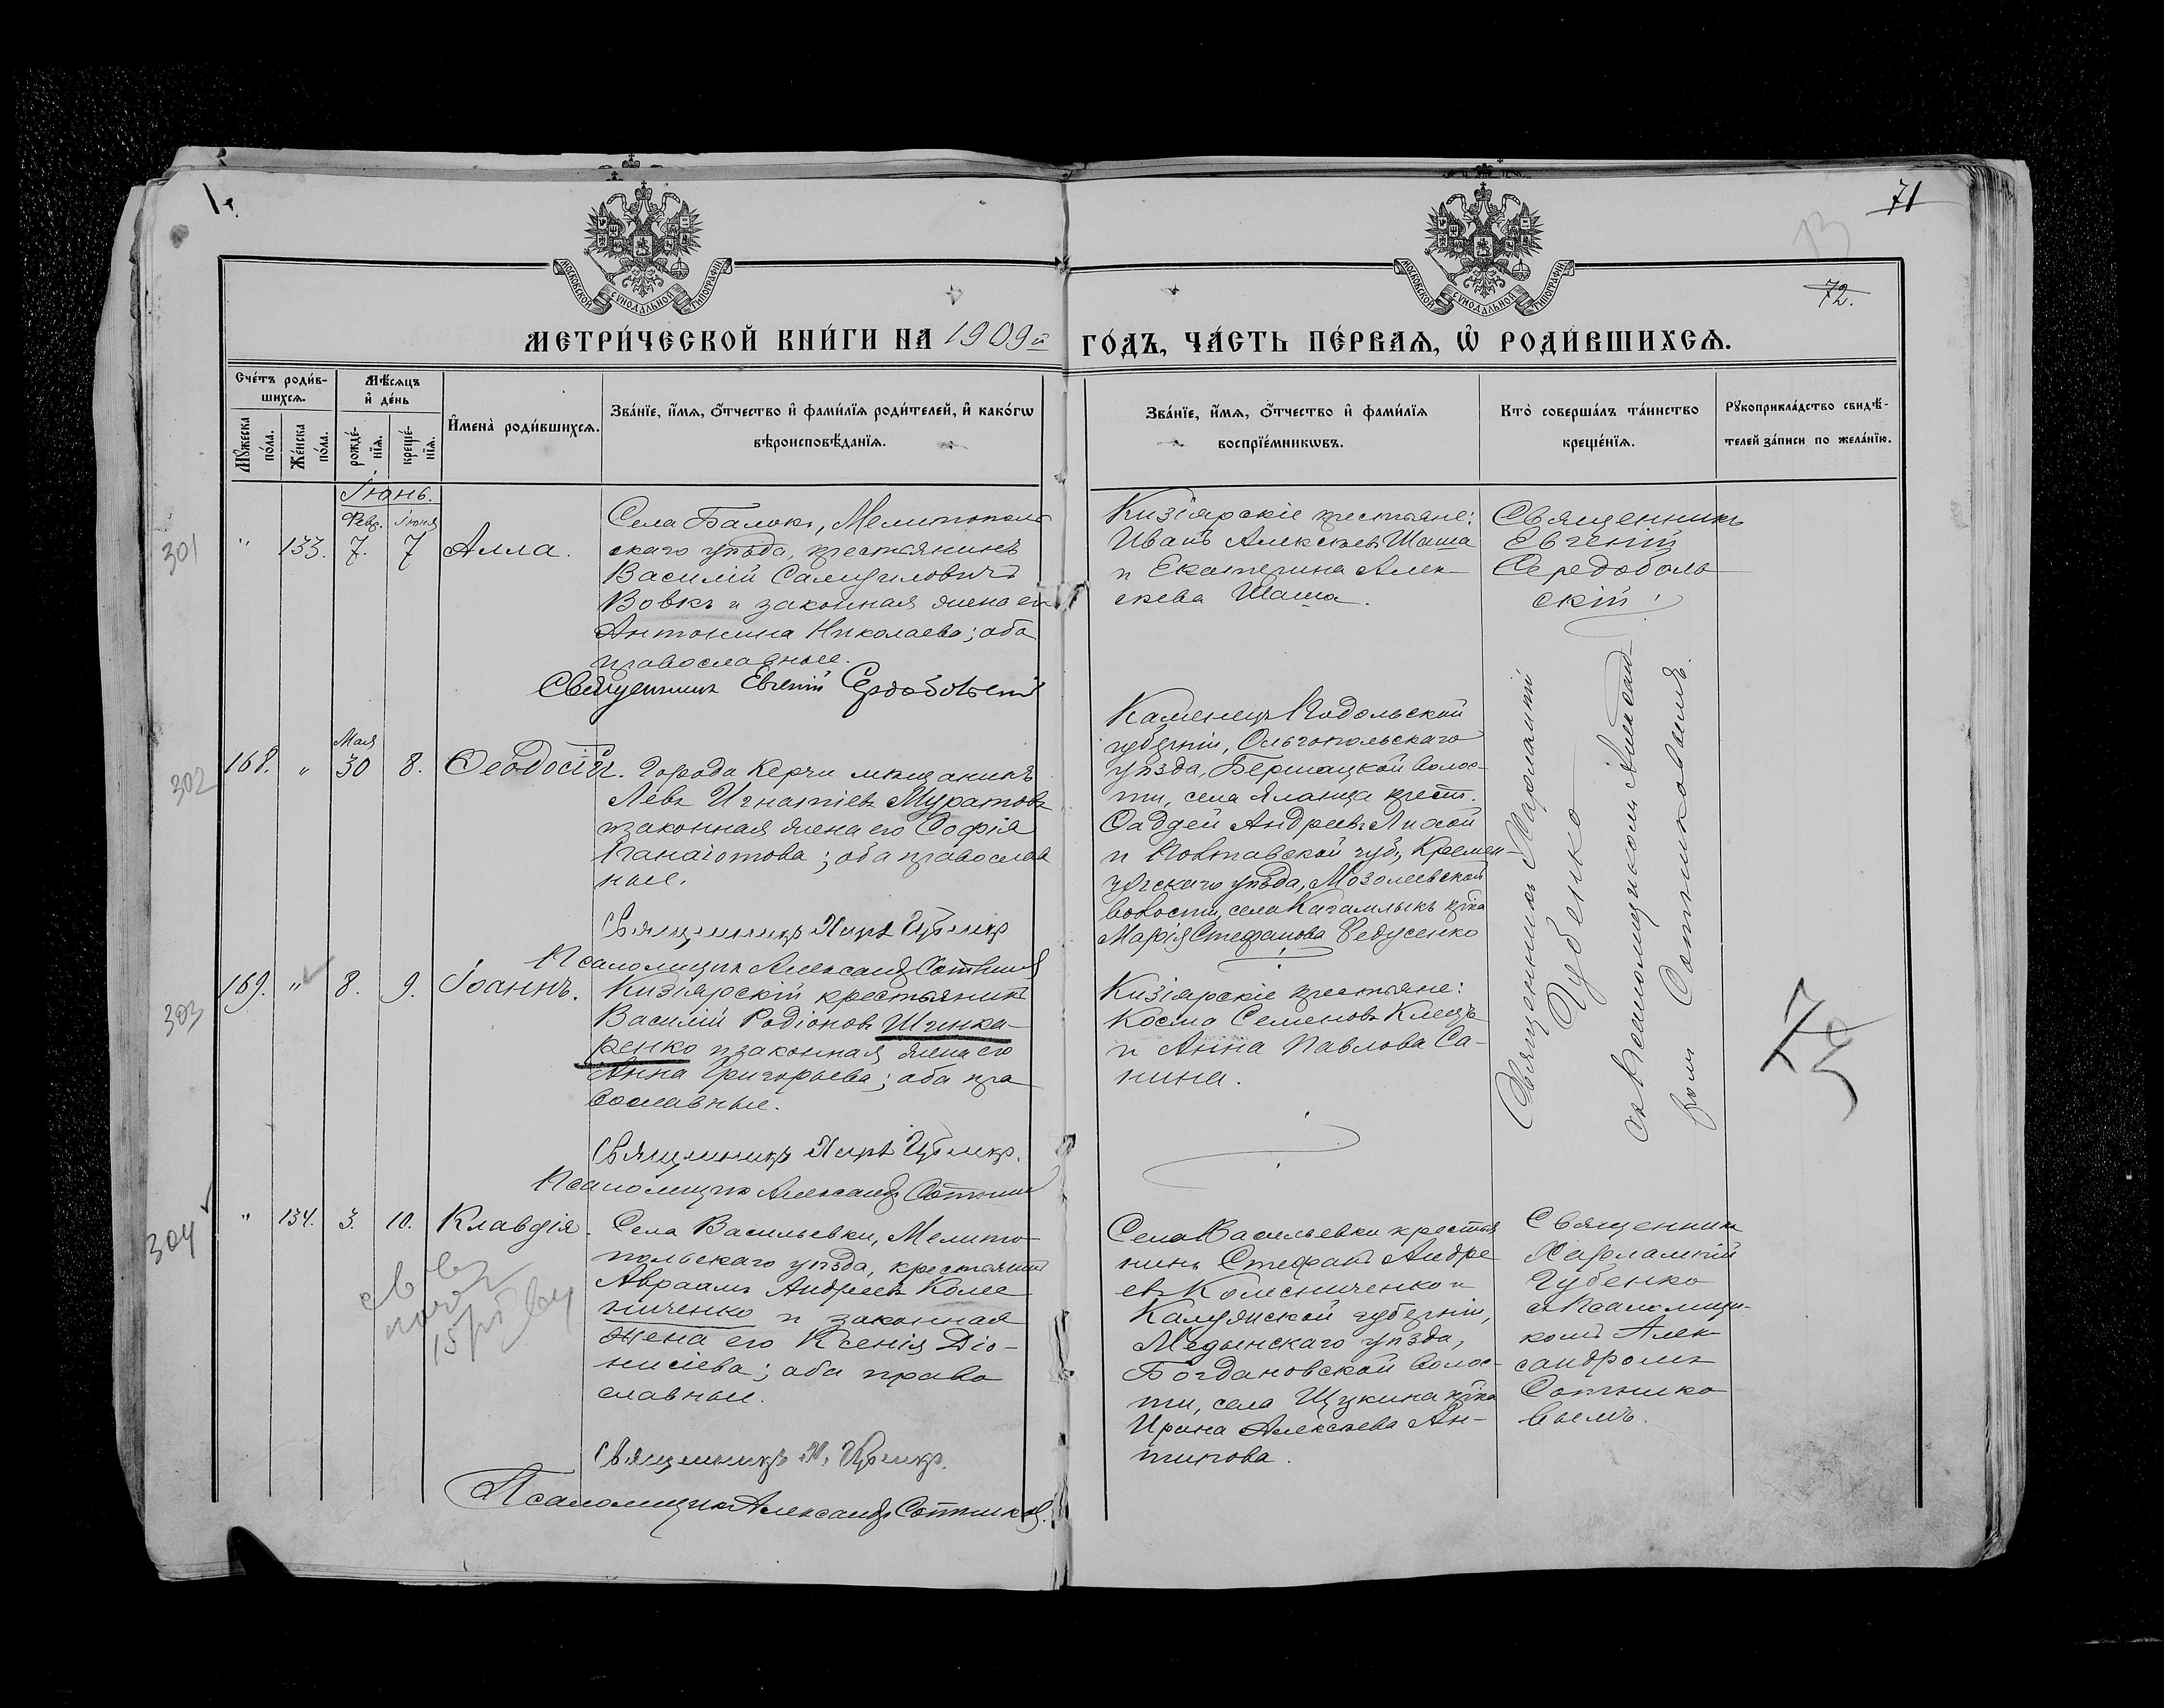 71
72.
МОСКОВСКОЙ СУНОДАЛЬНОЙ ТИПОГРАФІИ
МОСКОВСКОЙ СУНОДАЛЬНОЙ ТИПОГРАФІИ
МЕТРИ́ЧЕСКОЙ КНИ́ГИ НА 1909й ГО́ДЪ, ЧА́СТЬ ПЕ́РВАѦ, Ѽ РОДИ́ВШИХСѦ.
Сче́тъ роди́в-
шихсѧ.
Мꙋ́жеска по́ла.
Же́нска по́ла.
Мѣ́сѧцъ
и҆ де́нь
рожде́-
нїѧ.
креще́-
нїѧ.
И҆мена̀ роди́вшихсѧ.
Зва́нїе, и҆́мѧ, ѻ҆́тчество и҆ фами́лїѧ роди́телей, и҆ како́гѡ
вѣроисповѣ́данїѧ.
Зва́нїе, и҆́мѧ, ѻ҆́тчество и҆ фами́лїѧ
воспрїе́мникѡвъ.
Кто̀ соверша́лъ та́инство
креще́нїѧ.
Рꙋкоприкла́дство свидѣ́-
телей за́писи по жела́нїю.
Іюнь.
Февр. Іюня
301 " 133. 7. 7 Алла.
Села Балокъ, Мелитополь
скаго уѣзда, крестьянинъ
Василій Самуиловичъ
Вовкъ и законная жена его
Антонина Николаева; оба
православные.
Священникъ Евгеній Середобольскій
Кизіярскіе крестьяне:
Иванъ Алексѣевъ Шаша
и Екатерина Алек
сѣева Шаша.
Священникъ
Евгеній
Середоболь
скій
Мая
302 168. " 30 8. Ѳеодосій.
Города Керчи мѣщанинъ
Левъ Игнатіевъ Муратовъ
и законная жена его Софія
Панаіотова; оба православ
ные.
Священникъ Харл. Губенко
Псаломщикъ Александръ Сотников
Каменецъ Подольской
губерніи, Ольгопольскаго
уѣзда, Бершадской волос-
ти, села Яланца крест.
Ѳаддей Андреевъ Лисой
и Полтавской губ., Кремен-
чугскаго уѣзда, Мозолеевской
волости, села Кагамлыкъ кр-ка
Марія Стефанова Федусенко
Священникъ Харлампій
Губенко
съ Псаломщикомъ Александ
ромъ Сотниковымъ.
303 169. " 8. 9. Іоаннъ.
Кизіярскій крестьянинъ
Василій Родіоновъ Шинка-
ренко и законная жена его
Анна Григорьева; оба пра
вославные.
Священникъ Харл. Губенко.
Псаломщикъ Александръ Сотников
Кизіярскіе крестьяне:
Косма Семеновъ Клецъ
и Анна Павлова Са-
нина.
304 " 134. 3. 10. Клавдія.
Села Васильевки, Мелито-
польскаго уѣзда, крестьянинъ
Авраамъ Андреевъ Колес
ниченко и законная
жена его Ксенія Діо-
нисіева; оба право
славные.
Священникъ Х. Губенко.
Псаломщикъ Александръ Сотников.
Села Васильевки крестья
нинъ Стефанъ Андре
евъ Колесниченко и
Калужской губерніи,
Медынскаго уѣзда,
Богдановской волос-
ти, села Щукина кр-ка
Ирина Алексѣева Ан-
типова.
Священник
Харлампій
Губенко
съ Псаломщи-
комъ Алек
сандромъ
Сотнико
вымъ.